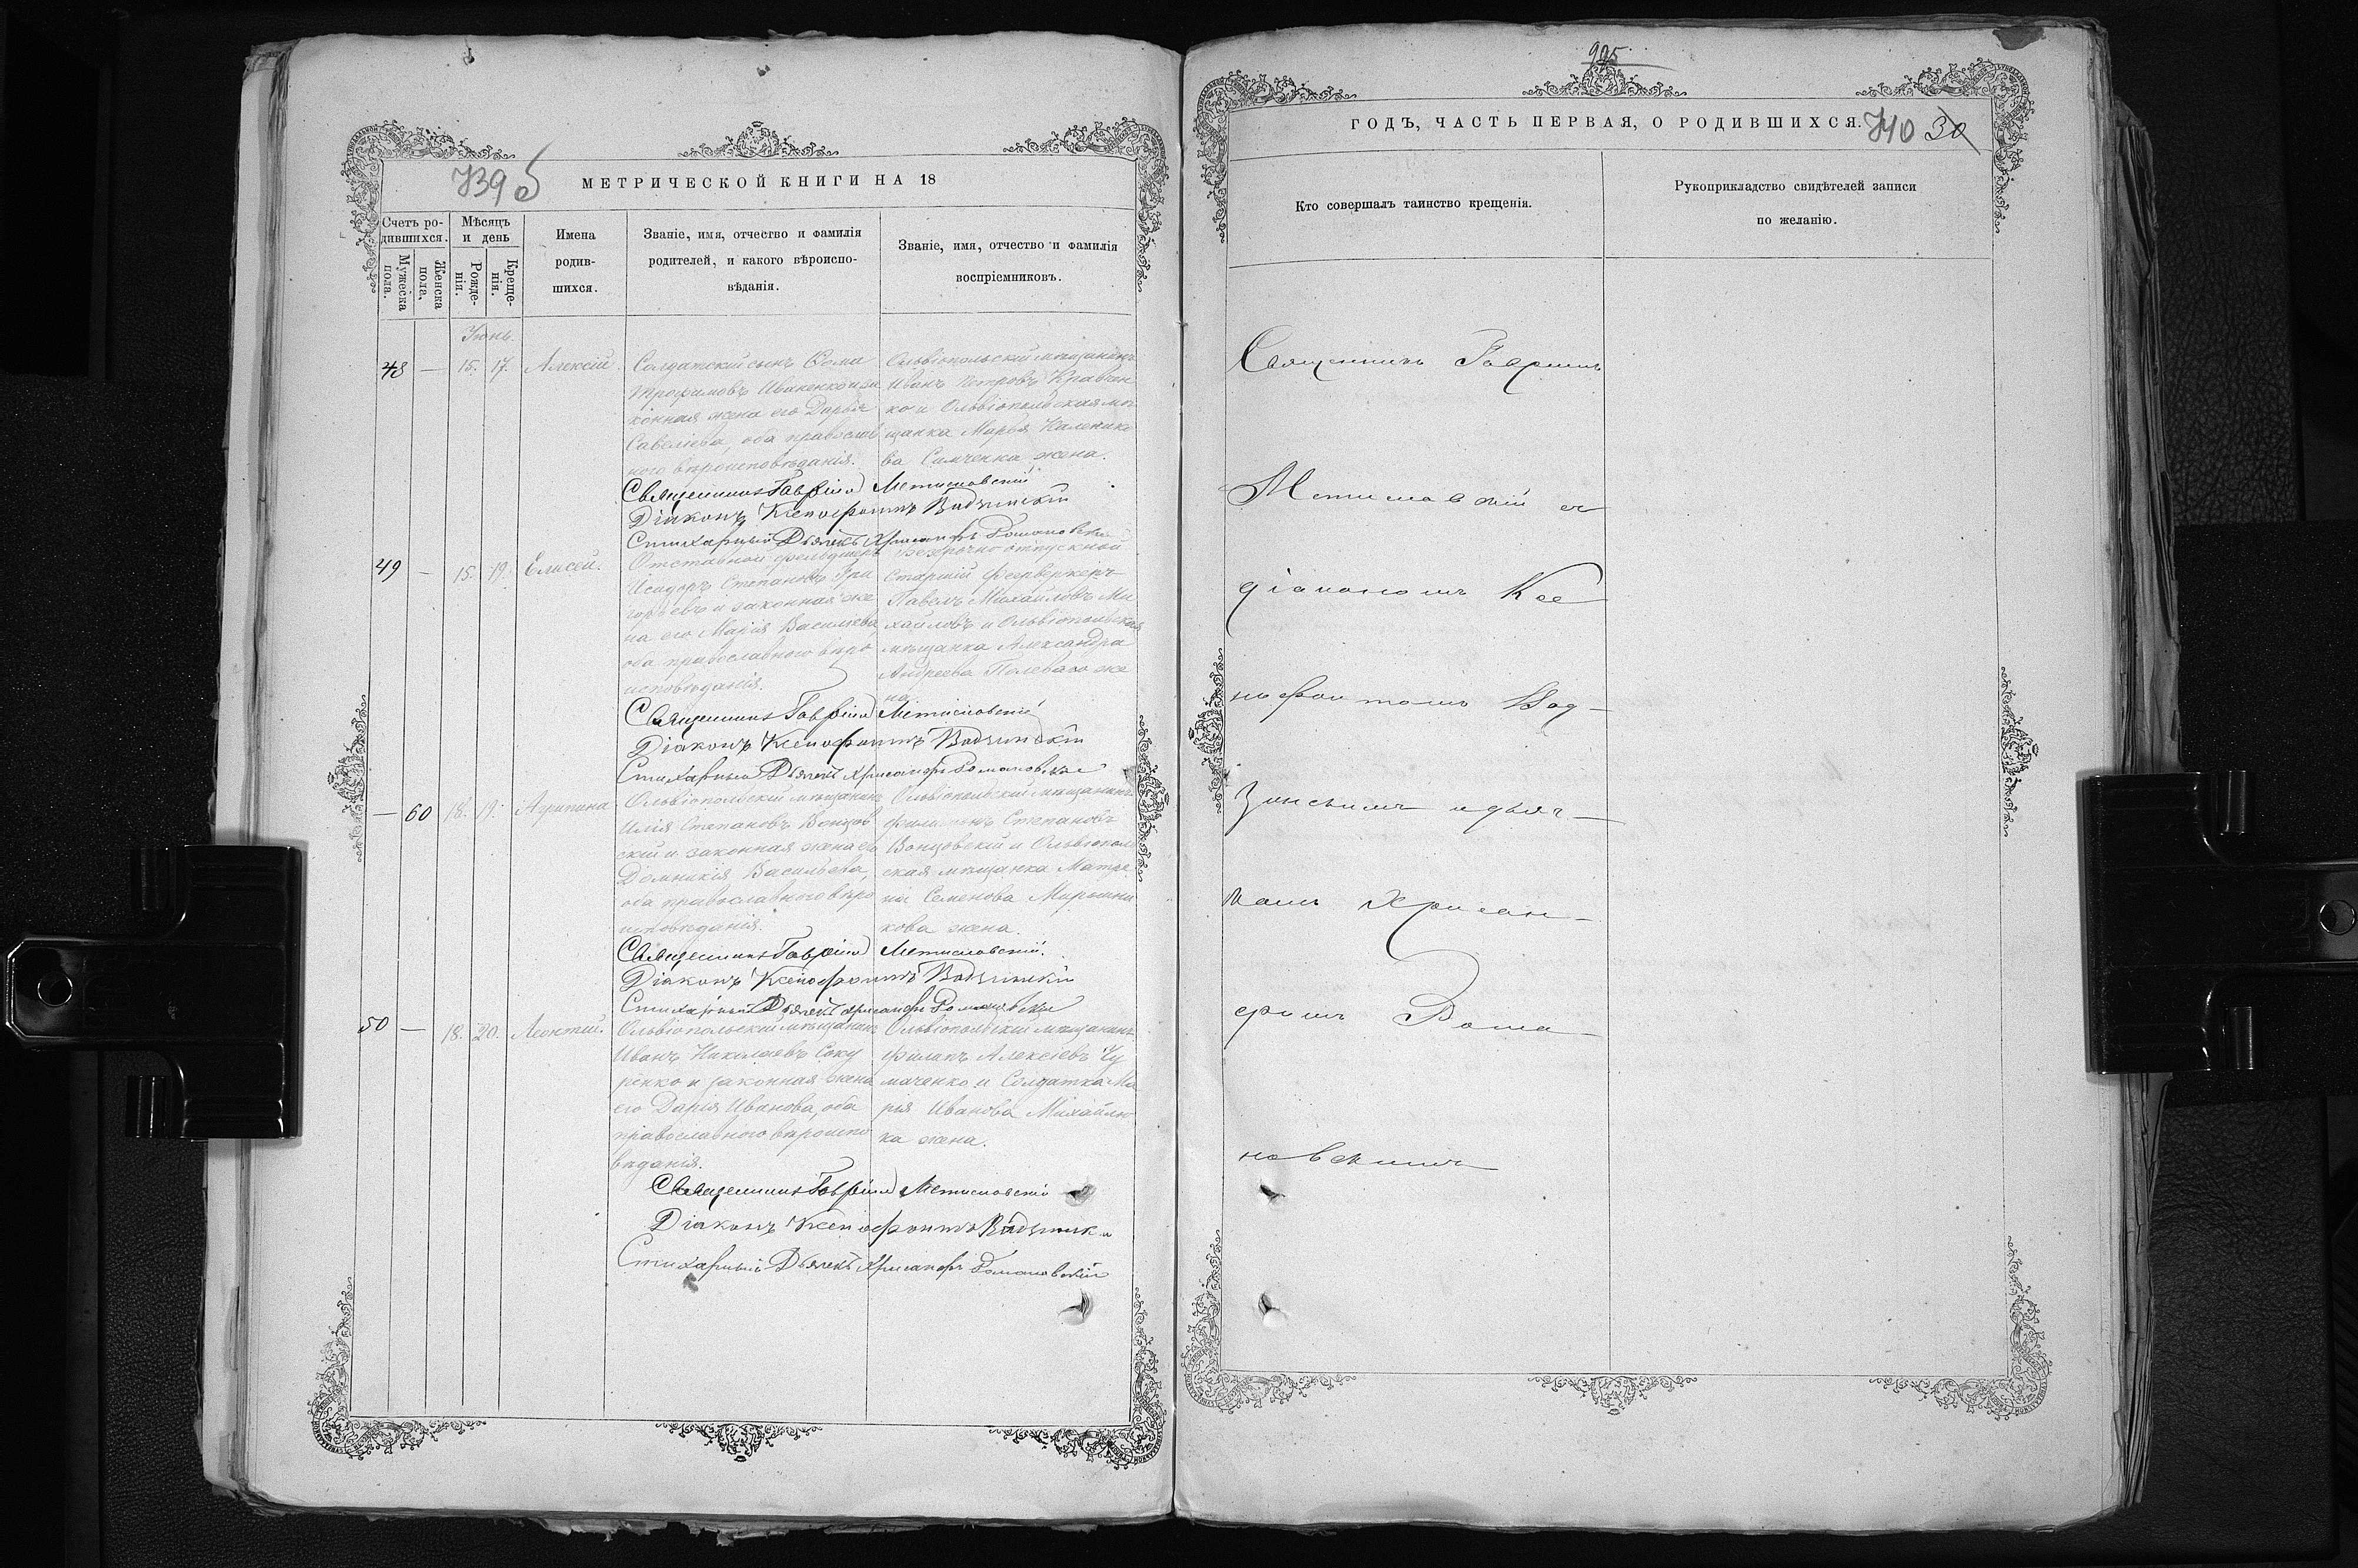 739 б
МЕТРИЧЕСКОЙ КНИГИ НА 18
Счетъ ро-
дившихся.
Мужеска
пола.
Женска
пола.
Мѣсяцъ
и день
Рожде-
нія.
Креще-
нія.
Имена
родив-
шихся.
Званіе, имя, отчество и фамилія
родителей, и какого вѣроиспо-
вѣданія.
Званіе, имя, отчество и фамилія
воспріемниковъ.
Іюнь.
48 — 15. 17. Алексій.
Солдатскій сынъ Ѳома
Трофимовъ Иваненко и за
конная жена его Дарья
Савелієва, оба православ
ного вѣроисповѣданія.
Ольвіопольскій мѣщанинъ
Иванъ Петровъ Кравчен
ко и Ольвіопольская мѣ
щанка Марѳа Каленико
ва Симченка жена.
Священникъ Гавріилъ Мстиславскій
Діаконъ Ксенофонтъ Вадзинскій
Стихарный Дьячекъ Хрисанфъ Романовскій
49 — 15. 19. Елисей.
Отставной фельдшеръ
Исидоръ Степановъ Гри
горьевъ и законная же
на его Марія Василієва,
оба православного вѣро
исповѣданія.
безсрочно отпускной
Старшій фейерверкеръ
Павелъ Михайловъ Ми
хайловъ и Ольвіопольская
мѣщанка Александра
Андреева Полеваго же
на.
Священникъ Гавріилъ Мстиславскій
Діаконъ Ксенофонтъ Вадзинскій
Стихарный Дьячекъ Хрисанфъ Романовскій
— 60 18. 19. Агрипина
Ольвіопольскій мѣщанинъ
Илія Степановъ Вонцов
скій и законная жена его
Домникія Васильева,
оба православного вѣро
исповѣданія.
Ольвіопольскій мѣщанинъ
Степановъ
Вонцовскій и Ольвіополь
ская мѣщанка Матро
на Семенова Мирошни
кова жена.
Священникъ Гавріилъ Мстиславскій.
Діаконъ Ксенофонтъ Вадзинскій
Стихарный Дьячекъ Хрисанфъ Романовскій
50 — 18. 20. Леонтій.
Ольвіопольскій мѣщанинъ
Иванъ Николаевъ Соку
ренко и законная жена
его Дарія Иванова, оба
православного вѣроиспо
вѣданія.
Ольвіопольскій мѣщанинъ
Филипъ Алексіевъ Чу
маченко и Солдатка Ма
рія Иванова Михайлю
ка жена.
Священникъ Гавріилъ Мстиславскій
Діаконъ Ксенофонтъ Вадзинскій
Стихарный Дьячекъ Хрисанфъ Романовскій
995
ГОДЪ, ЧАСТЬ ПЕРВАЯ, О РОДИВШИХСЯ.
740 30
Кто совершалъ таинство крещенія.
Рукоприкладство свидѣтелей записи
по желанію.
Священникъ Гавріилъ
Мстиславскій съ
діакономъ Ксе
нофонтомъ Вад-
зинскимъ и дьяч-
комъ Хрисан-
фомъ Рома-
новскимъ